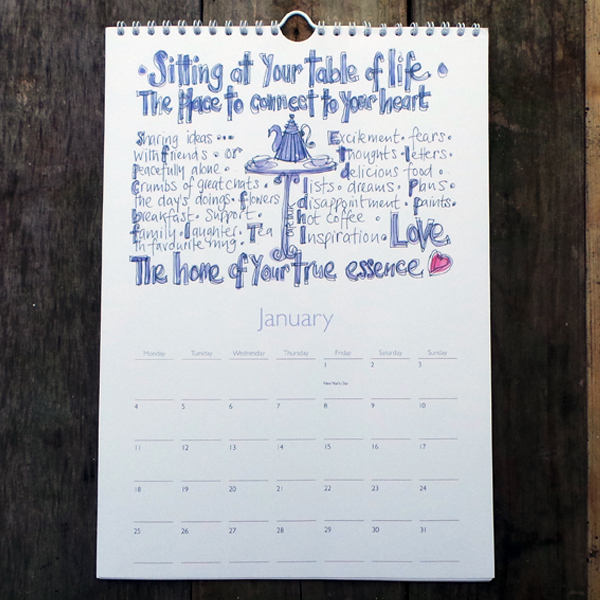 Sitting at Your table of life.
The Place to connect to your heart
Sharing ideas ...
with friends. or
peacefully alone.
Crumbs of great chats.
the day's doings. flowers
breakfast. Support.
family. laughter. Tea
in favourite mug.
Excitement. fears.
Thoughts. letters.
delicious food.
lists. dreams. Plans.
disappointment. paints.
hot coffee.
Inspiration. Love.
The home of Your true essence
January
Monday Tuesday Wednesday Thursday Friday Saturday Sunday
1 2 3
New Year's Day
4 5 6 7 8 9 10
11 12 13 14 15 16 17
18 19 20 21 22 23 24
25 26 27 28 29 30 31